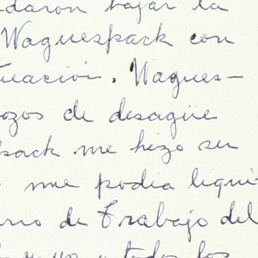 daron bajar la
Waguespack con
eación. Wagues-
ozos de desagüe
pack me hizo su
me podia liqui
rio de Trabajo del
y todo los